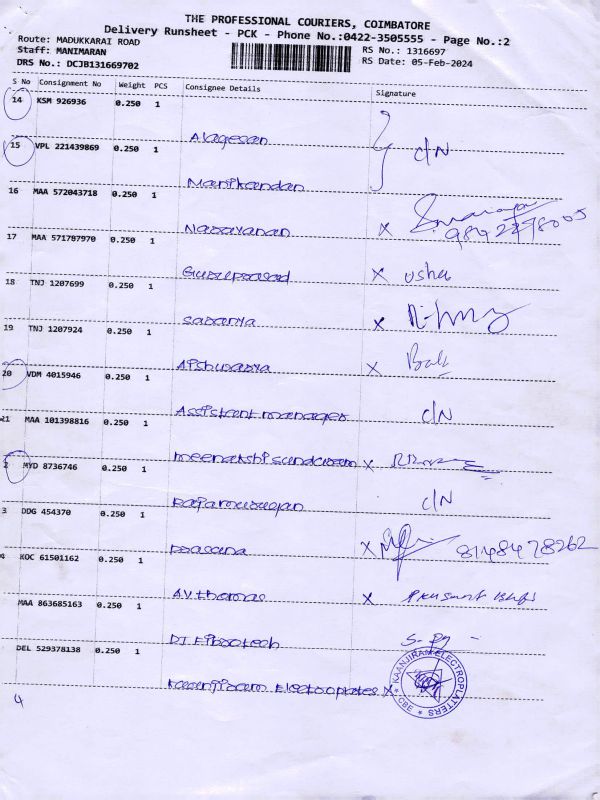 THE PROFESSIONAL COURIERS, COIMBATORE
Delivery Runsheet - PCK - Phone No.:0422-3505555 - Page No.:2
Route: MADUKKARAI ROAD
Staff: MANIMARAN
DRS No.: DCJB131669702
RS No.: 1316697
RS Date: 05-Feb-2024
S No Consignment No Weight PCS Consignee Details Signature
14 KSM 926936 0.250 1
Alagesan
15 VPL 221439869 0.250 1 C/N
Manikandan
16 MAA 572043718 0.250 1
Narayanan X
17 MAA 571787970 0.250 1
Guruprasad X usha
18 TNJ 1207699 0.250 1
saranya X
19 TNJ 1207924 0.250 1
Aishwarya X
20 VDM 4015946 0.250 1
Assistant manager C/N
21 MAA 101398816 0.250 1
meenakshisundaram X
2 MYD 8736746 0.250 1
Rajamurugan C/N
3 DDG 454370 0.250 1
prasana X 8148478262
4 KOC 61501162 0.250 1
A.V. thomas X
MAA 863685163 0.250 1
DJ Fibrotech
DEL 529378138 0.250 1
Kaanjiram Electroplates X
KAANJIRAM ELECTROPLATTERS
CBE
4